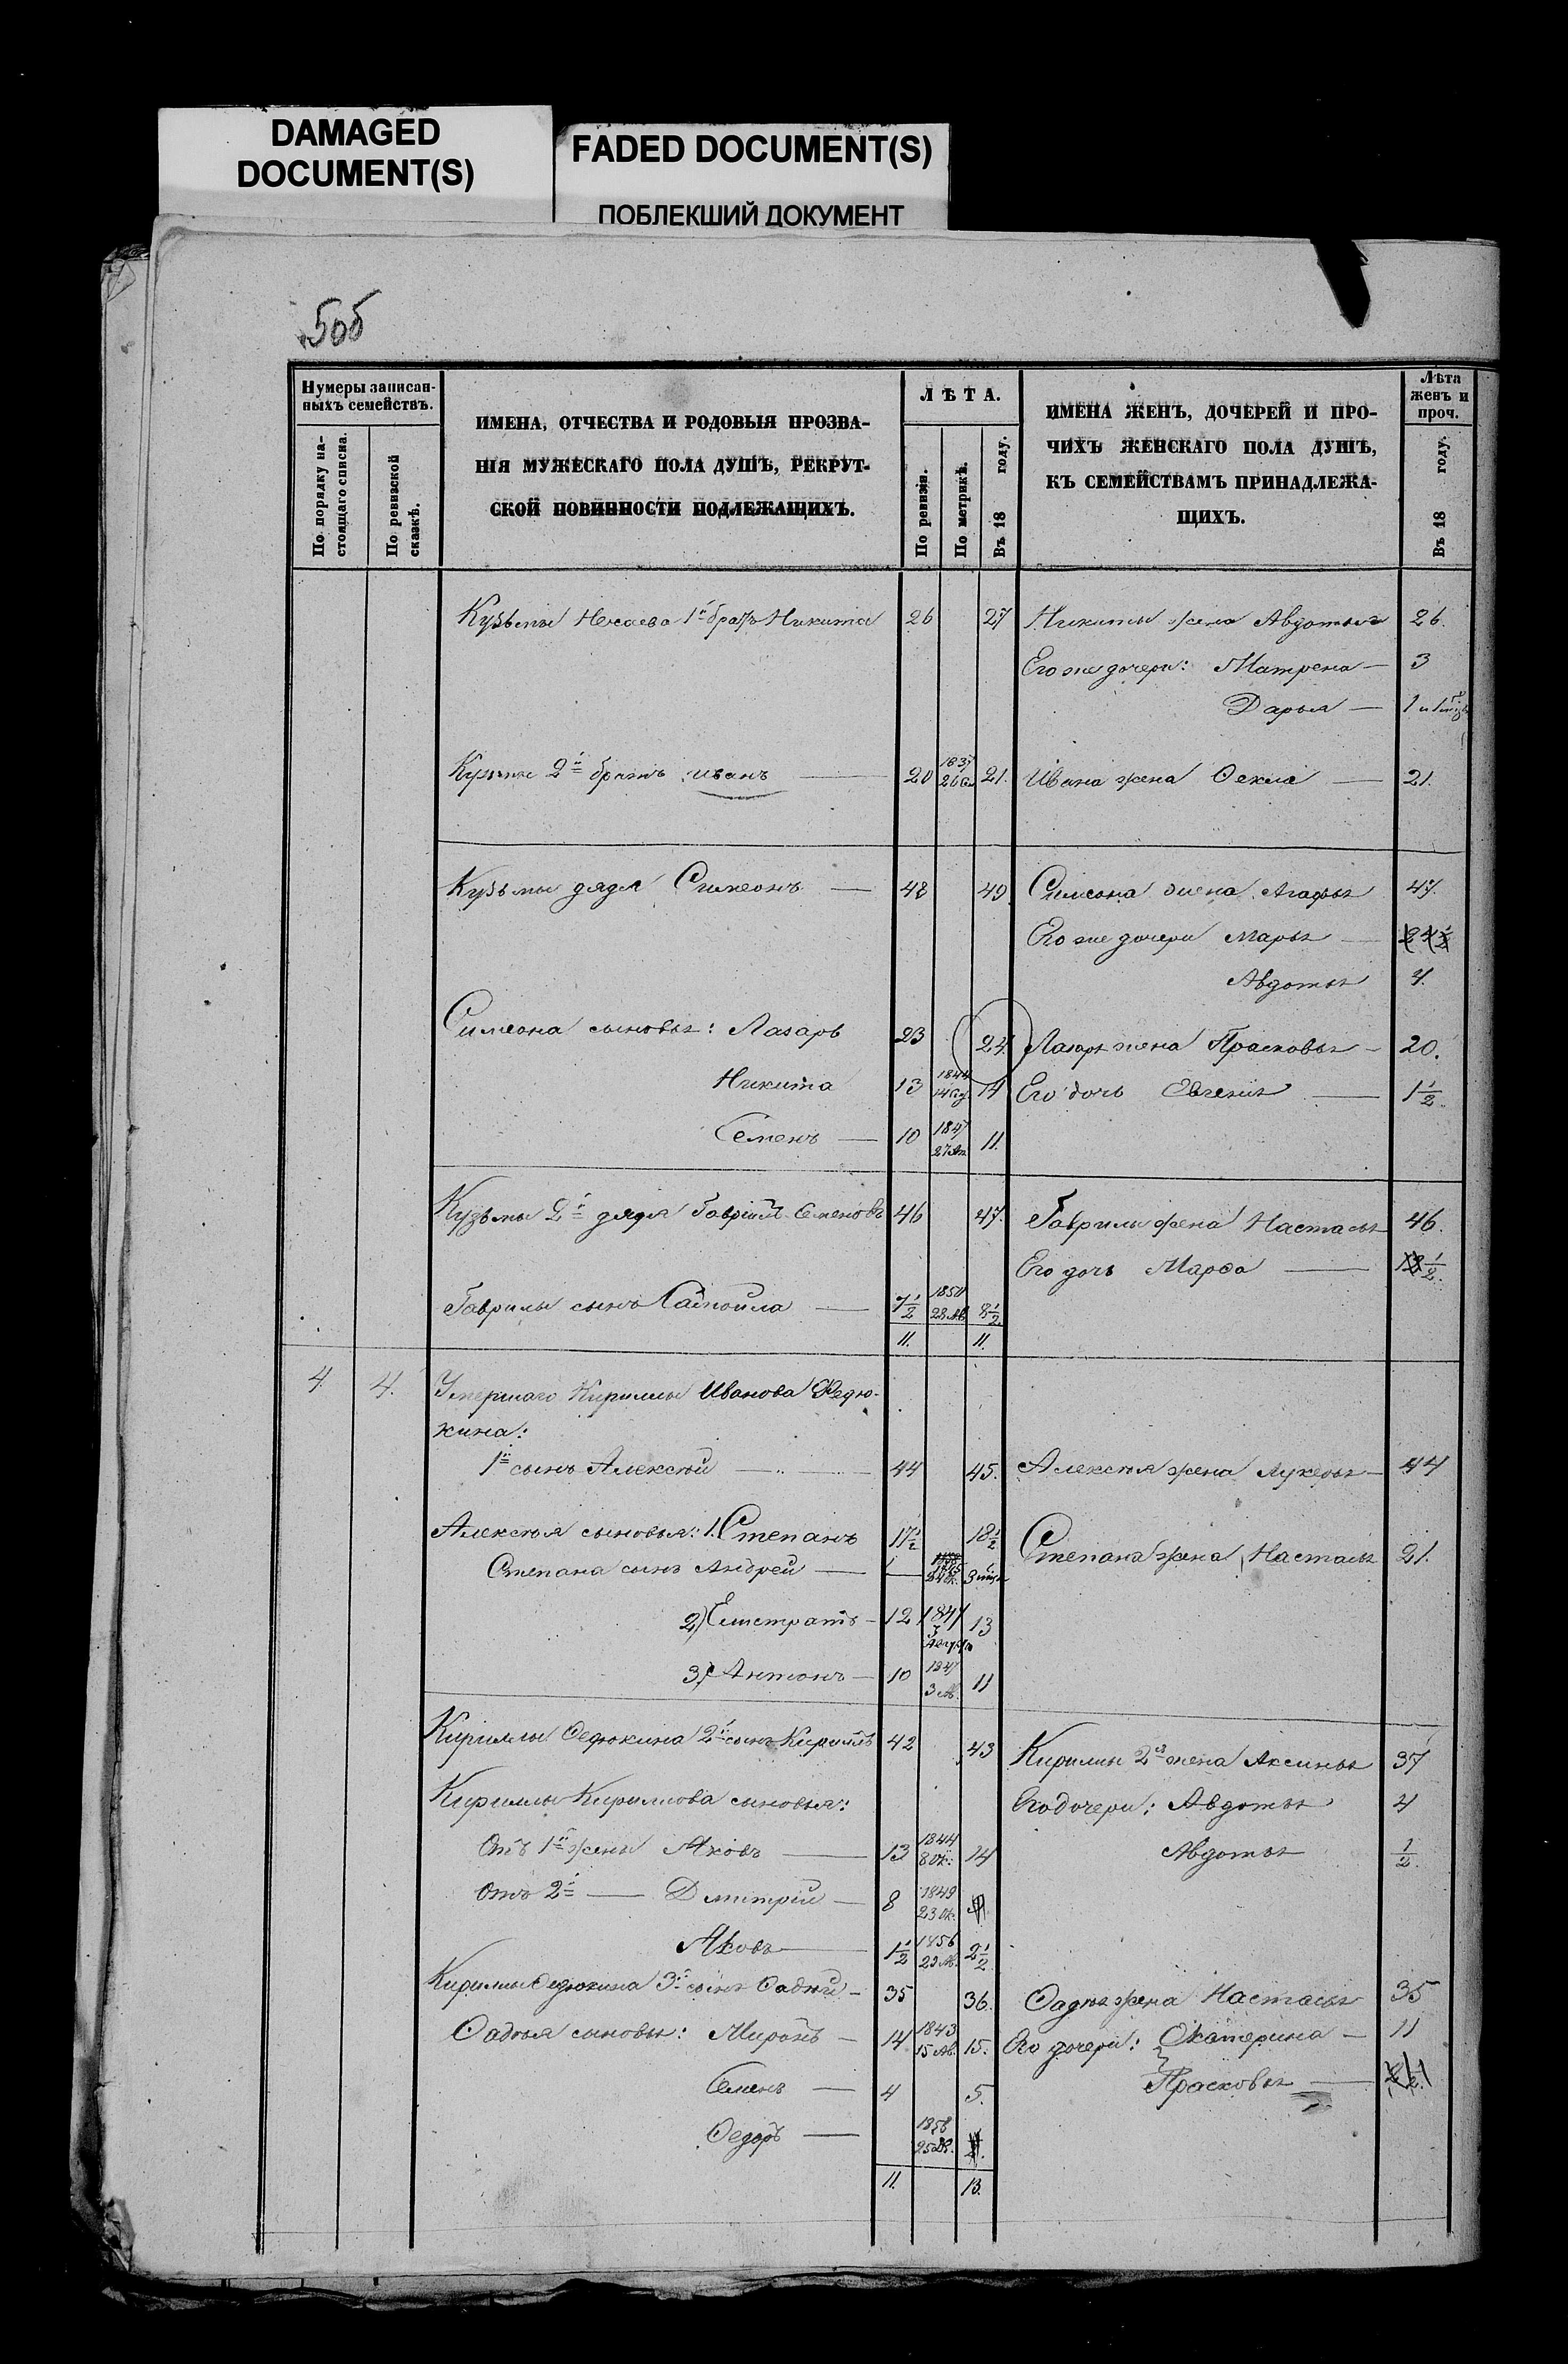 DAMAGED
DOCUMENT(S)
FADED DOCUMENT(S)
ПОБЛЕКШИЙ ДОКУМЕНТ
506
Нумеры записан-
ныхъ семействъ.
По порядку на-
стоящаго списка.
По ревизской
сказкѣ.
ИМЕНА, ОТЧЕСТВА И РОДОВЫЯ ПРОЗВА-
НІЯ МУЖЕСКАГО ПОЛА ДУШЪ, РЕКРУТ-
СКОЙ ПОВИННОСТИ ПОДЛЕЖАЩИХЪ.
ЛѢТА.
По ревизіи.
По метрикѣ.
Въ 18 году.
ИМЕНА ЖЕНЪ, ДОЧЕРЕЙ И ПРО-
ЧИХЪ ЖЕНСКАГО ПОЛА ДУШЪ,
КЪ СЕМЕЙСТВАМЪ ПРИНАДЛЕЖА-
ЩИХЪ.
Лѣта
женъ и
проч.
Въ 18 году.
Кузьмы 1й братъ Никита 26 27 Никиты жена Авдотья 26.
Его же дочери: Матрена — 3
Дарья —
Кузьмы 2й братъ Иванъ — 20 1837 21. Ивана жена Ѳекла — 21.
Кузьмы дядя Симеонъ — 48 49. Симеона жена Агафья 47.
Его же дочери Марья —
Авдотья 4.
Симеона сыновья: Лазарь 23 24. Лазаря жена Прасковья — 20.
Никита 13 1844 14 Его дочь Евгенія — 1½.
Семенъ — 10 1847 11.
Кузьмы 2й дядя Гаврiилъ Семеновъ 46 47. Гаврилы жена Настасья 46.
Его дочь Марѳа —
Гаврилы сынъ Самойла — 7½ 1850 8½.
11. 11.
4. 4. Умершаго Кириллы Иванова Федю-
кина:
1й сынъ Алексѣй — 44 45. Алексѣя жена Лукерья — 44
Алексѣя сыновья: 1. Степанъ 17½ 18½ Степана жена Настасья 21.
Степана сынъ Андрей —
2) Елистратъ — 12 1847 13
3) Антонъ — 10 1847 3 Ав. 11
Кириллы Ѳедюкина 2й сынъ Кириллъ 42 43 Кирилы 2я жена Аксинья 37
Кириллы Кирилова сыновья: Его дочери: Авдотья 4
Отъ 1й жены Яковъ — 13 1844 8 Ок: 14 Авдотья ½.
Отъ 2й — Дмитрій — 8 1849 23 Ок:
Яковъ — 1½ 1856 2½
Кирилы Ѳедюкина 3й сынъ Ѳадѣй — 35 36. Ѳадѣя жена Настасья 35
Ѳадѣя сыновья: Миронъ — 14 1843 15 Ав. 15. Его дочери: Екатерина — 11
Семенъ — 4 5. Прасковья —
Ѳедоръ — 1858
11. 13.